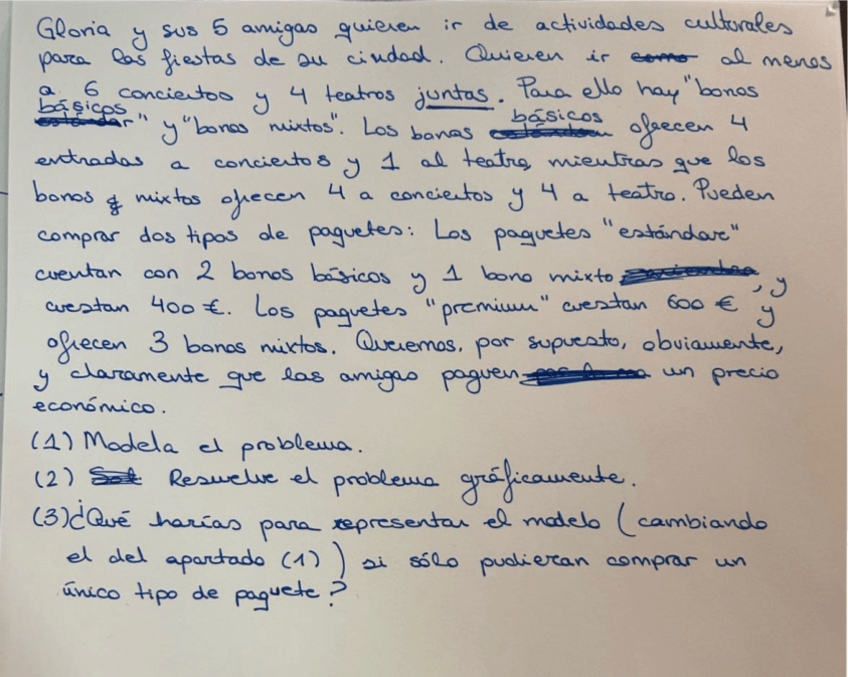 Gloria y sus 5 amigas quieren ir de actividades culturales
para las fiestas de su ciudad. Quieren ir como al menos
a 6 conciertos y 4 teatros juntas. Para ello hay "bonos
básicos" y "bonos mixtos". Los bonos básicos ofrecen 4
entradas a conciertos y 1 al teatro, mientras que los
bonos mixtos ofrecen 4 a conciertos y 4 a teatro. Pueden
comprar dos tipos de paquetes: Los paquetes "estándar"
cuentan con 2 bonos básicos y 1 bono mixto, y
cuestan 400 €. Los paquetes "premium" cuestan 600 € y
ofrecen 3 bonos mixtos. Queremos, por supuesto, obviamente,
y claramente que las amigas paguen un precio
económico.
(1) Modela el problema.
(2) Resuelve el problema gráficamente.
(3) ¿Qué harías para representar el modelo (cambiando
el del apartado (1)) si sólo pudieran comprar un
único tipo de paquete?